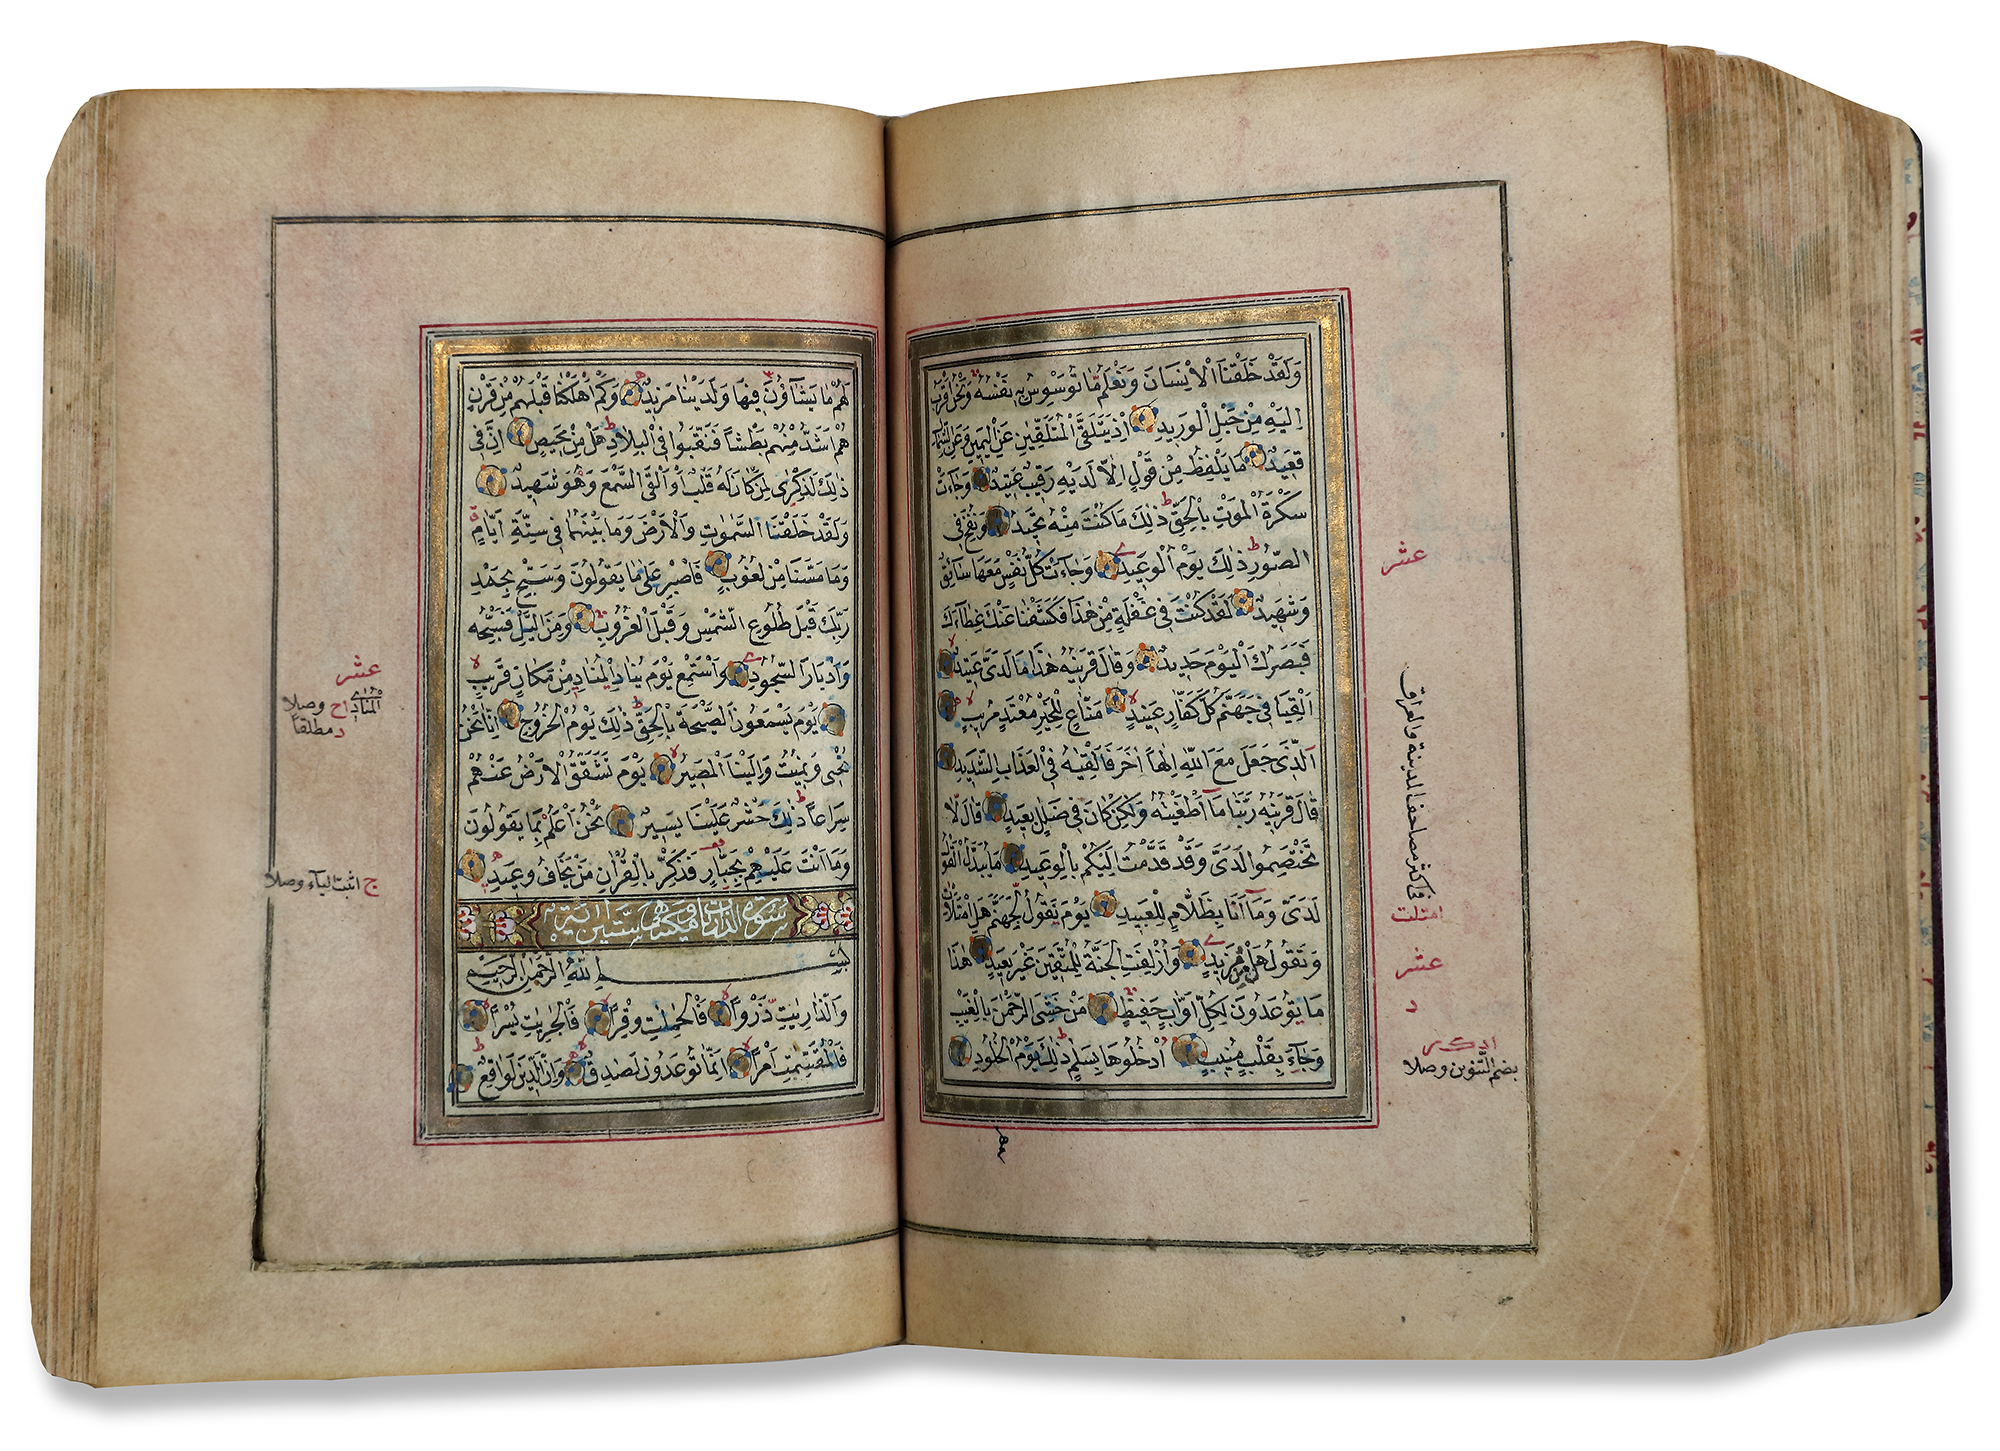 وَلَقَدْ خَلَقْنَا الْاِنْسَانَ وَنَعْلَمُ مَا تُوَسْوِسُ بِهِ نَفْسُهُ وَنَحْنُ اَقْرَبُ
اِلَيْهِ مِنْ حَبْلِ الْوَرِيدِ اِذْ يَتَلَقَّى الْمُتَلَقِّيٰنِ عَنِ الْيَمِينِ وَعَنِ الشِّمَالِ
قَعِيدٌ مَا يَلْفِظُ مِنْ قَوْلٍ اِلَّا لَدَيْهِ رَقِيبٌ عَتِيدٌ وَجَاءَتْ
سَكْرَةُ الْمَوْتِ بِالْحَقِّ ط ذٰلِكَ مَا كُنْتَ مِنْهُ تَحِيدُ وَنُفِخَ فِي
الصُّورِ ط ذٰلِكَ يَوْمُ الْوَعِيدِ وَجَاءَتْ كُلُّ نَفْسٍ مَعَهَا سَائِقٌ
وَشَهِيدٌ لَقَدْ كُنْتَ فِي غَفْلَةٍ مِنْ هٰذَا فَكَشَفْنَا عَنْكَ غِطَاءَكَ
فَبَصَرُكَ الْيَوْمَ حَدِيدٌ وَقَالَ قَرِينُهُ هٰذَا مَا لَدَيَّ عَتِيدٌ
اَلْقِيَا فِي جَهَنَّمَ كُلَّ كَفَّارٍ عَنِيدٍ مَنَّاعٍ لِلْخَيْرِ مُعْتَدٍ مُرِيبٍ
اَلَّذِي جَعَلَ مَعَ اللّٰهِ اِلٰهًا اٰخَرَ فَاَلْقِيٰهُ فِي الْعَذَابِ الشَّدِيدِ
قَالَ قَرِينُهُ رَبَّنَا مَا اَطْغَيْتُهُ وَلٰكِنْ كَانَ فِي ضَلَالٍ بَعِيدٍ قَالَ لَا
تَخْتَصِمُوا لَدَيَّ وَقَدْ قَدَّمْتُ اِلَيْكُمْ بِالْوَعِيدِ مَا يُبَدَّلُ الْقَوْلُ
لَدَيَّ وَمَا اَنَا بِظَلَّامٍ لِلْعَبِيدِ يَوْمَ نَقُولُ لِجَهَنَّمَ هَلِ امْتَلَاْتِ
وَتَقُولُ هَلْ مِنْ مَزِيدٍ وَاُزْلِفَتِ الْجَنَّةُ لِلْمُتَّقِينَ غَيْرَ بَعِيدٍ هٰذَا
مَا تُوعَدُونَ لِكُلِّ اَوَّابٍ حَفِيظٍ مَنْ خَشِيَ الرَّحْمٰنَ بِالْغَيْبِ
وَجَاءَ بِقَلْبٍ مُنِيبٍ اُدْخُلُوهَا بِسَلَامٍ ط ذٰلِكَ يَوْمُ الْخُلُودِ
عشر
في اكثر مصاحف المدينة والعراق
امتلت
عشر
د
بضم التنوين وصلا
لَهُمْ مَا يَشَاؤُنَ فِيهَا وَلَدَيْنَا مَزِيدٌ وَكَمْ اَهْلَكْنَا قَبْلَهُمْ مِنْ قَرْنٍ
هُمْ اَشَدُّ مِنْهُمْ بَطْشًا فَنَقَّبُوا فِي الْبِلَادِ ط هَلْ مِنْ مَحِيصٍ اِنَّ فِي
ذٰلِكَ لَذِكْرٰى لِمَنْ كَانَ لَهُ قَلْبٌ اَوْ اَلْقَى السَّمْعَ وَهُوَ شَهِيدٌ
وَلَقَدْ خَلَقْنَا السَّمٰوٰتِ وَالْاَرْضَ وَمَا بَيْنَهُمَا فِي سِتَّةِ اَيَّامٍ
وَمَا مَسَّنَا مِنْ لُغُوبٍ فَاصْبِرْ عَلٰى مَا يَقُولُونَ وَسَبِّحْ بِحَمْدِ
رَبِّكَ قَبْلَ طُلُوعِ الشَّمْسِ وَقَبْلَ الْغُرُوبِ وَمِنَ الَّيْلِ فَسَبِّحْهُ
وَاَدْبَارَ السُّجُودِ وَاسْتَمِعْ يَوْمَ يُنَادِ الْمُنَادِ مِنْ مَكَانٍ قَرِيبٍ
يَوْمَ يَسْمَعُونَ الصَّيْحَةَ بِالْحَقِّ ط ذٰلِكَ يَوْمُ الْخُرُوجِ اِنَّا نَحْنُ
نُحْيِي وَنُمِيتُ وَاِلَيْنَا الْمَصِيرُ يَوْمَ تَشَقَّقُ الْاَرْضُ عَنْهُمْ
سِرَاعًا ط ذٰلِكَ حَشْرٌ عَلَيْنَا يَسِيرٌ نَحْنُ اَعْلَمُ بِمَا يَقُولُونَ
وَمَا اَنْتَ عَلَيْهِمْ بِجَبَّارٍ فَذَكِّرْ بِالْقُرْاٰنِ مَنْ يَخَافُ وَعِيدِ
سورة الذاريات مكية وهي ستين اية
بِسْمِ اللّٰهِ الرَّحْمٰنِ الرَّحِيمِ
وَالذَّارِيٰتِ ذَرْوًا فَالْحٰمِلٰتِ وِقْرًا فَالْجٰرِيٰتِ يُسْرًا
فَالْمُقَسِّمٰتِ اَمْرًا اِنَّمَا تُوعَدُونَ لَصَادِقٌ وَاِنَّ الدِّينَ لَوَاقِعٌ
عشر
المنادي اح وصلا
د مطلقا
ج اثبت الياء وصلا